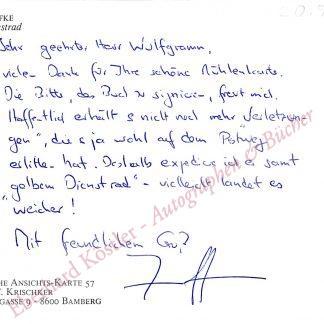 FKE
nstrad
Sehr geehrter Herr Wulfgramm,
vielen Dank für Ihre schöne Mühlenkarte.
Die Bitte, das Buch zu signieren, freut mich.
Hoffentlich erhält es nicht noch mehr "Verletzun-
gen", die es ja wohl auf dem Postweg
erlitten hat. Deshalb expediere ich es samt
"gelbem Dienstrad" - vielleicht landet es
"weicher"!
Mit freundlichem Gruß
HE ANSICHTS-KARTE 57
. KRISCHKER
GASSE 9 - 8600 BAMBERG
Eberhard Köstler - Autographen & Bücher